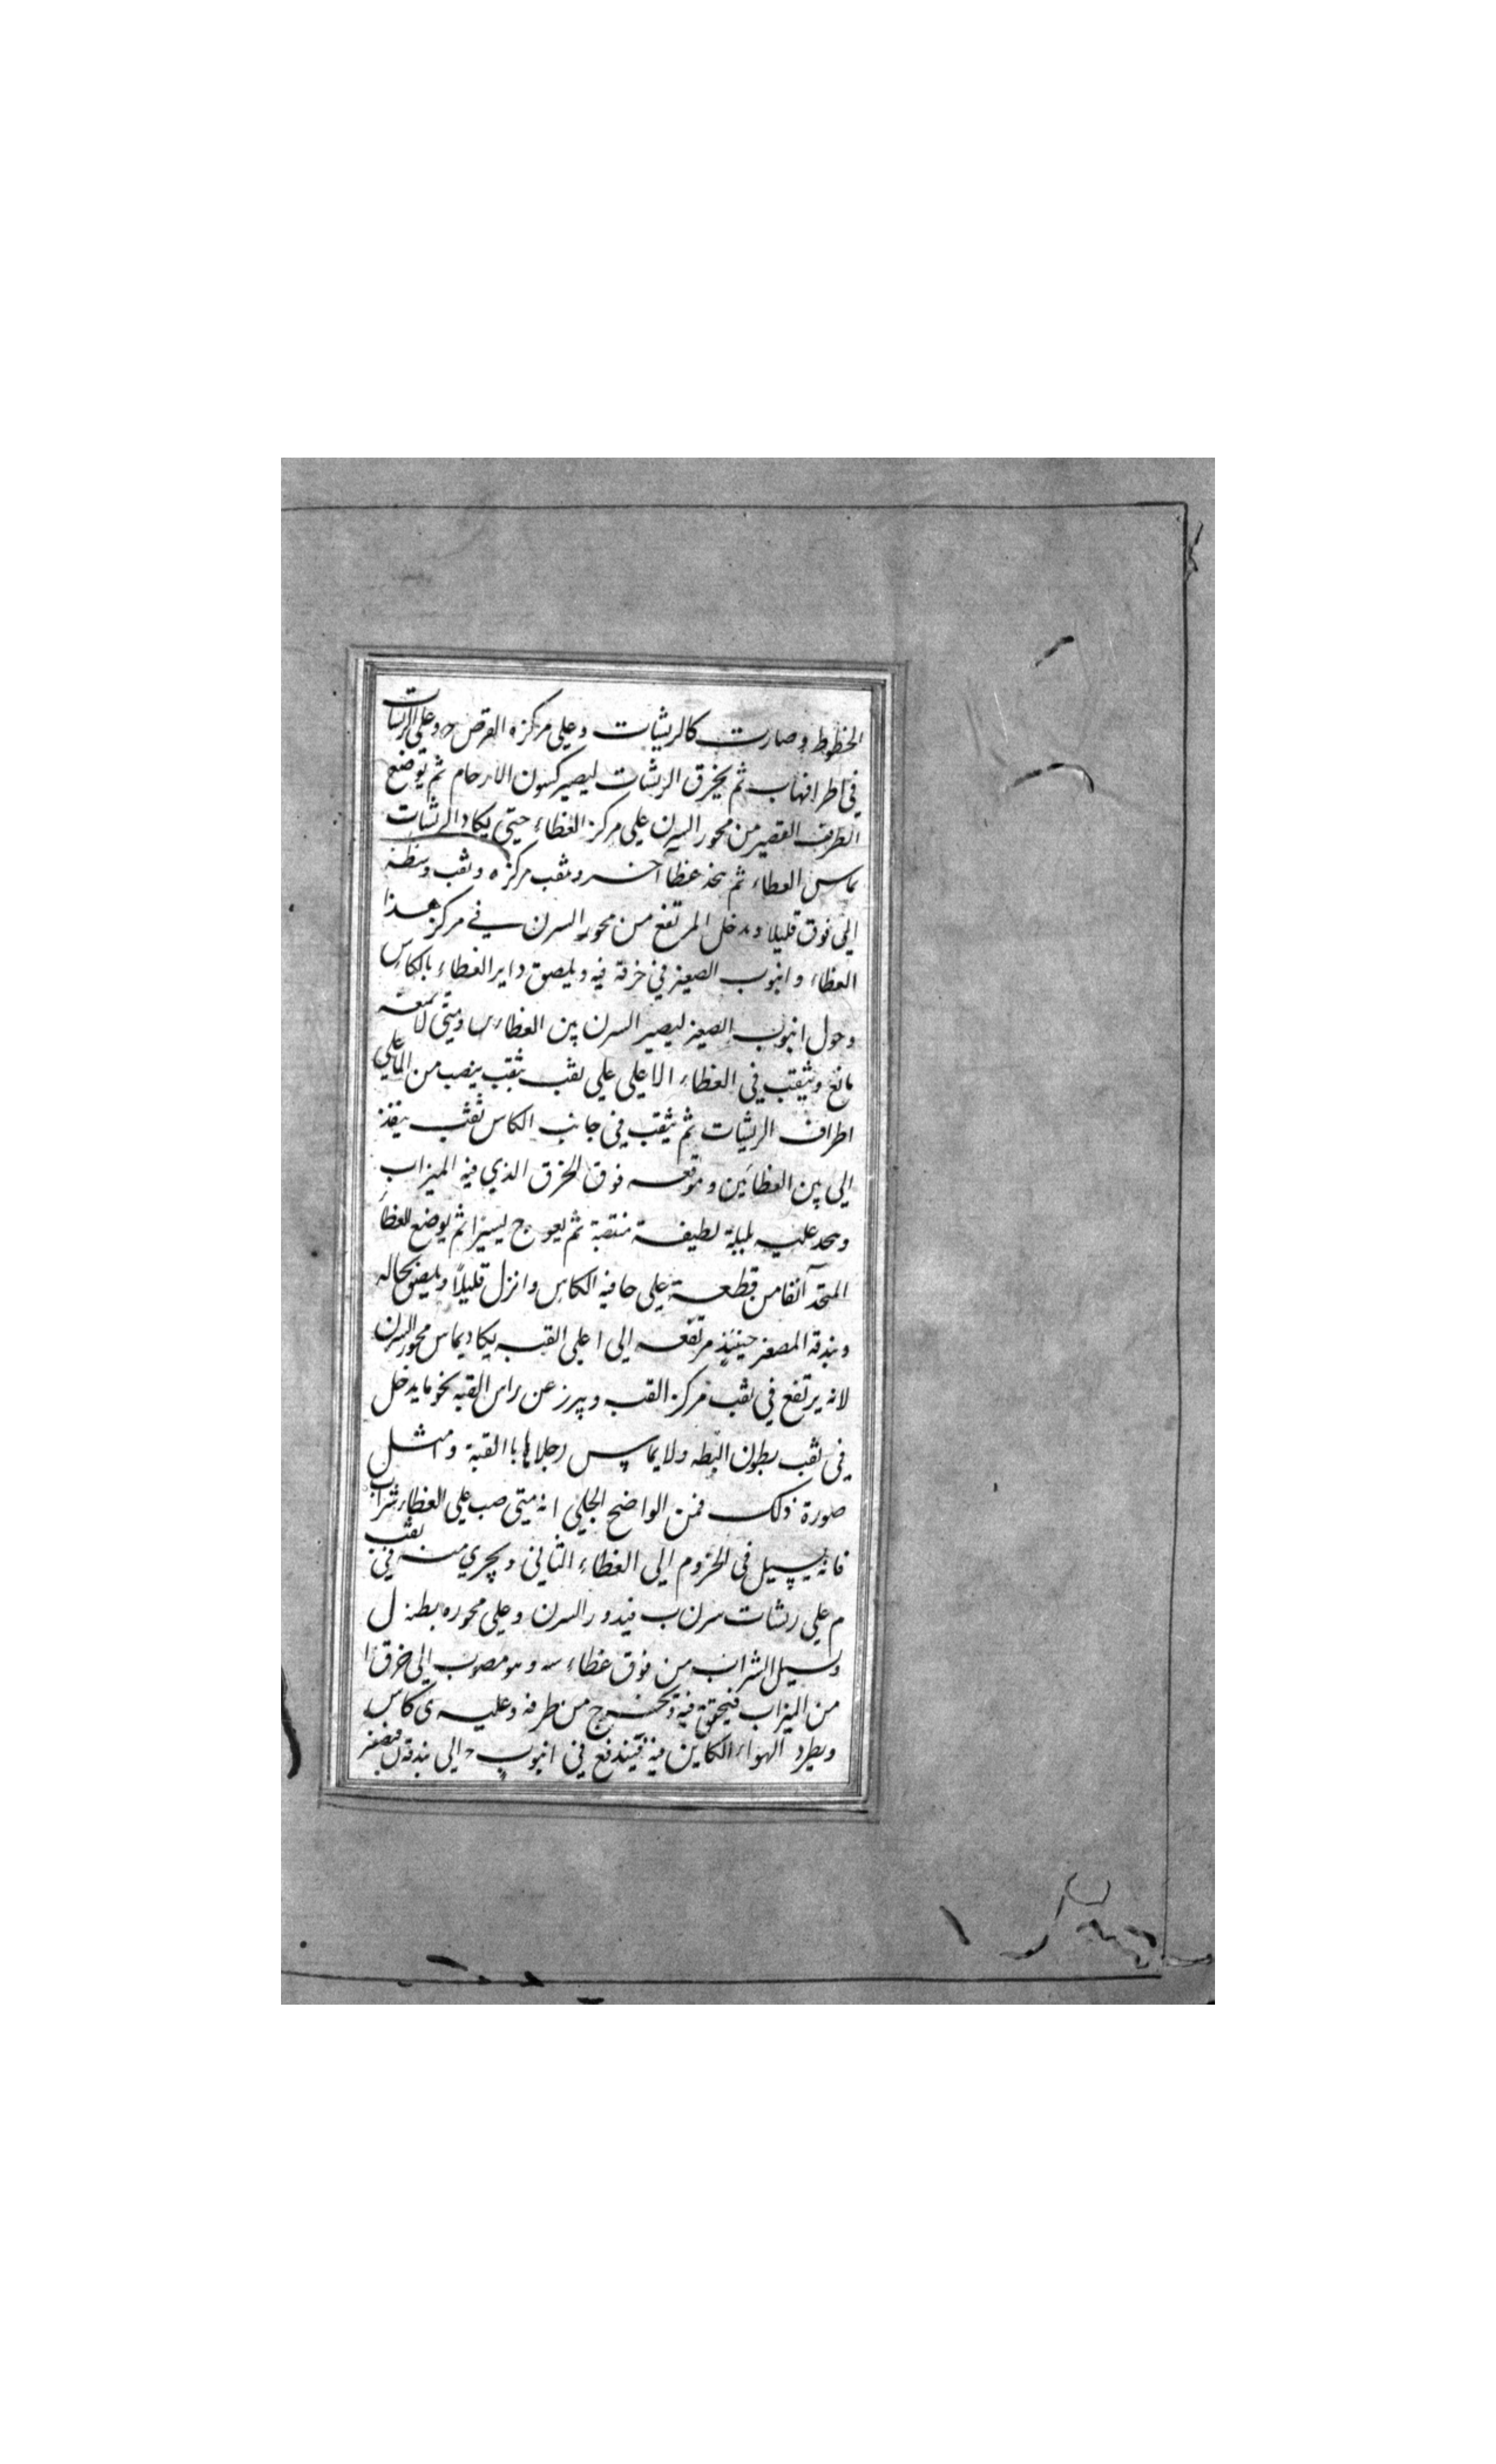 الخطوط وصارت كالريشات وعلى مركزه القرص ح وعلى الريشات
في اطرافهاب ثم يخرق الريشات ليصير كسون الارحام ثم يوضع
الطرف القصير من محور السرن على مركز الغطاء حتى يكاد الريشات
يماس الغطاء ثم يتخذ غطا آخر ويثقب مركزه وتقب وسطه
الى فوق قليلا ويدخل المرتفع من محور السرن في مركز هذا
الغطاء وانبوب الصفير في خرقة فيه ويلصق داير الغطاء بالكاس
وحول انبوب الصفير ليصير السرن بين الغطاء ومتى
مانع ويثقب في الغطاء الاعلى على ثقب يثقب ينصب من الماء على
اطراف الريشات ثم يثقب في جانب الكاس ثقب ينفذ
الى بين الغطائين وموقعه فوق الخرق الذي فيه الميزاب
ويتخذ عليه بلبلة لطيفة منتصبة ثم يعوج يسيرا ثم يوضع الغطا
المتخذ آنفا من قطعة على حافية الكاس وانزل قليلاً ويلصق بحاله
وبندقة المصفر حينئذ مرتفعه الى اعلى القبه يكاد يماس محور السرن
لانه يرتفع في ثقب مركز القبه ويبرز عن راس القبه نحو ما يدخل
في ثقب بطون البطه ولا يماس رجلاها با القبة وامثل
صورة ذلك فمن الواضح الجلي انه متى صب على الغطاء شراب
فانه يسيل في الخروم الى الغطاء الثاني ويجري منه في ثقب
م على ريشات سرن ب فيدور السرن وعلى محوره بطنه ل
ويسيل الشراب من فوق غطاء سه وهو مصوب الى خرق ا
من الميزاب فيحقق فيه ويخرج من طرفه وعليه ى كاس
ويطرد الهواء الكاين فيه فيندفع في انبوب ح الى بندقة ن فيصفر